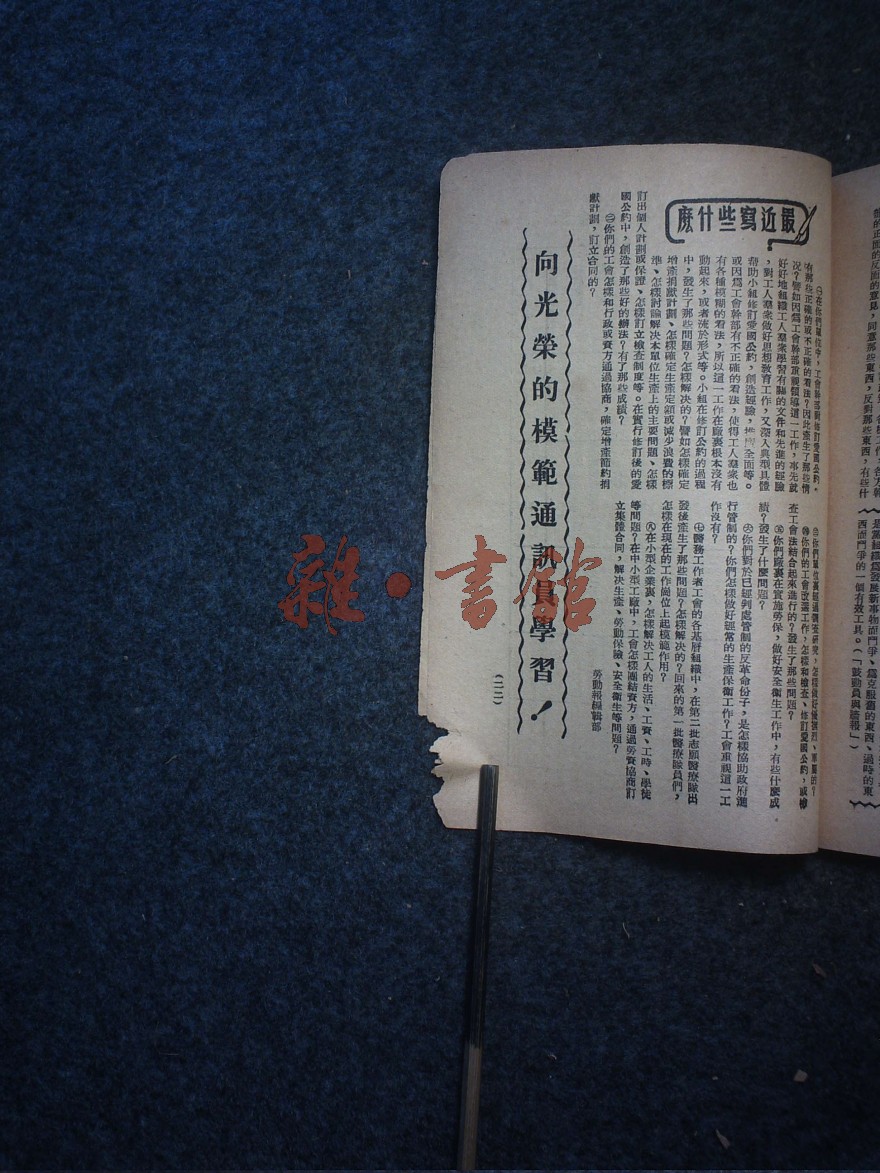 最近寫些什麼
㊀在你們單位中，工會幹部對修訂愛國公約，
有那些正確的或不正確的看法？因此產生了那些情
況？譬如因爲工會幹部重視領導這一工作，事先就
好好地組織工人羣衆學習有關的文件和先進的經驗
，對工人羣衆做好思想敎育工作，又深入典型具體
帮助小組修訂愛國公約，創造經驗，推廣全面等。
或因爲工會幹部有不正確的看法，使得工人羣衆也
有各種模糊的看法，所以這一工作在廠裏根本沒有
動起來，或者流於形式等。小組在修訂公約的過程
中，發生了那些問題？怎樣解決的？譬如怎樣確定
增產捐獻計劃、怎樣確定生產定額或減少浪費的標
準、怎樣討論解決本單位生產上的主要問題、怎樣
訂出個人計劃或保證、怎樣訂立檢查制度等。在實行修訂後的愛
國公約中，創造了那些好的辦法？有了那些成績？
㊁你們的工會怎樣和行政或資方通過協商，確定增產節約捐
獻計劃，訂立合同的？
你們的工會改選工作，怎樣和檢查、修訂愛國公約，或檢
查工會法結合起來進行的？發生了那些問題？
㊄你們廠裏在實施勞保，做好安全衛生工作中，有些什麼成
績？發生了什麼問題？
㊅你們對於已經判處管制的反革命份子，是怎樣協助政府進
行管制的？你們怎樣做好經常的生產保衛工作？工會重視這一工
作沒有？
㊆醫務工作者工會的各基層組織中，在第二批志願醫療隊出
發後產生了那些問題？怎樣解決的？回來的第一批醫療隊員們，
怎樣在現在的工作崗位上起模範作用？
㊇在小型企業裏，怎樣解決工人的生活、工資、工時、學徒
等問題？在中小型工廠中，工會怎樣團結資方，通過勞資協商訂
立集體合同，解決生產、勞動保險、安全衛生等問題？
勞動報編輯部
向光榮的模範通訊員學習！
（二二）
雜·書館
是黨組織爲發展新事物而鬥爭、爲克服舊的東西、過時的東
西而鬥爭的一個有效工具。（「鼓動員與牆報」）